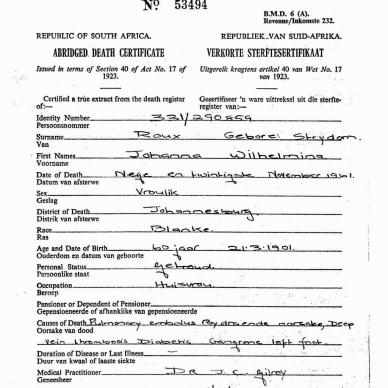 Nº 53494
B.M.D. 6 (A).
Revenue/Inkomste 232.
REPUBLIC OF SOUTH AFRICA. REPUBLIEK VAN SUID-AFRIKA.
ABRIDGED DEATH CERTIFICATE VERKORTE STERFTESERTIFIKAAT
Issued in terms of Section 40 of Act No. 17 of 1923. Uitgereik kragtens artikel 40 van Wet No. 17 van 1923.
Certified a true extract from the death register of:— Gesertifiseer 'n ware uittreksel uit die sterfteregister van:—
Identity Number 331/290859
Persoonsnommer
Surname Roux Gebore: Strydom
Van
First Names Johanna Wilhelmina
Voorname
Date of Death Nege en twintigste November 1961.
Datum van afsterwe
Sex Vroulik
Geslag
District of Death Johannesburg
Distrik van afsterwe
Race Blanke.
Ras
Age and Date of Birth 60 jaar 21.3.1901.
Ouderdom en datum van geboorte
Personal Status Getroud.
Persoonlike staat
Occupation Huisvrou.
Beroep
Pensioner or Dependent of Pensioner
Gepensioeneerde of afhanklike van gepensioeneerde
Causes of Death Pulmonary embolus Bydraende oorsake, Deep
Oorsake van dood
vein thrombosis Diabetic Gangrene left foot.
Duration of Disease or Last Illness —
Duur van kwaal of laaste siekte
Medical Practitioner DR J. C. Gilroy
Geneesheer